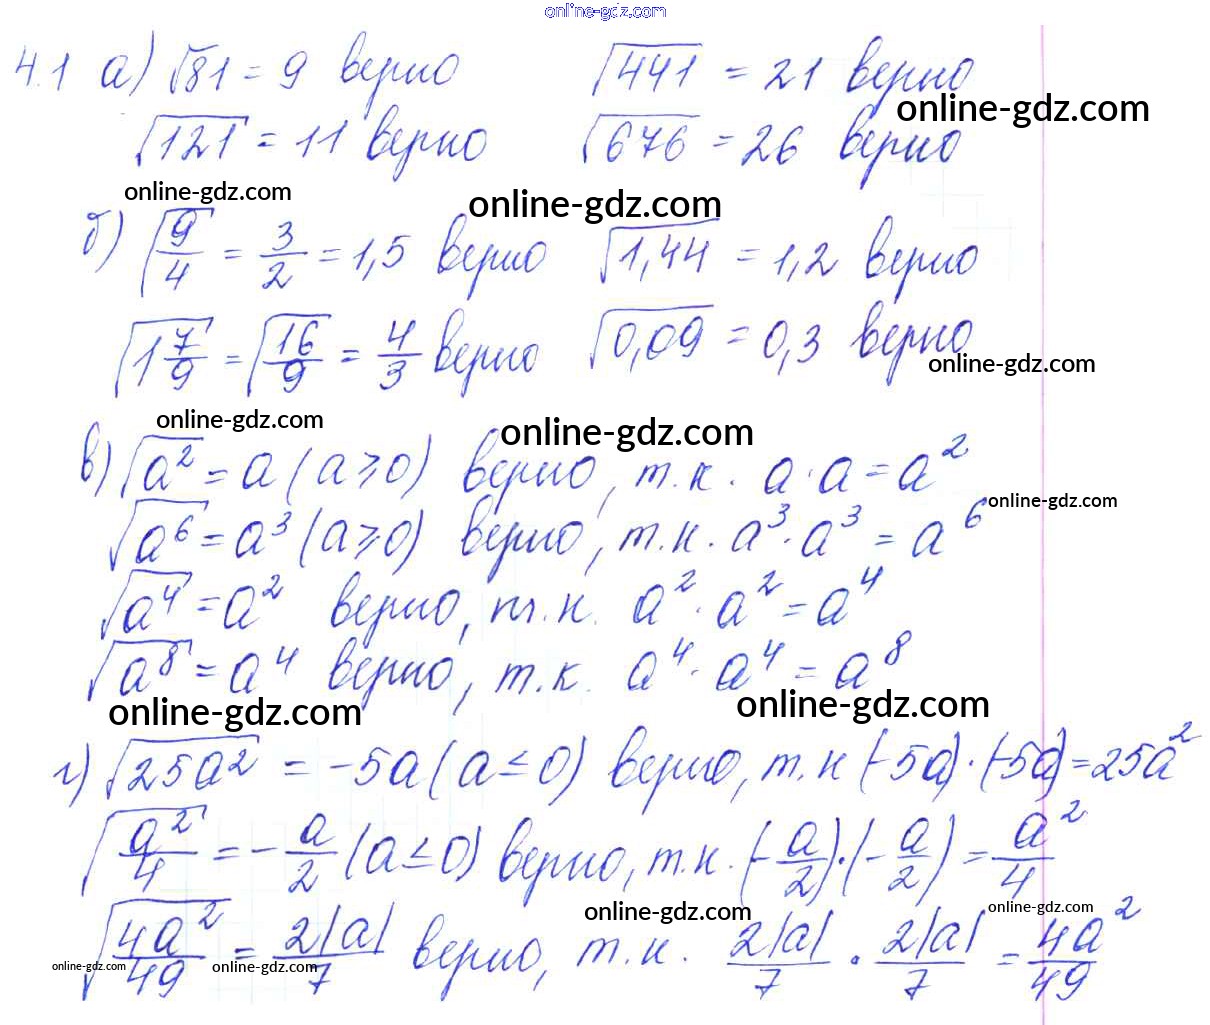 online-gdz.com
4.1 а) √81 = 9 верно √441 = 21 верно
online-gdz.com
√121 = 11 верно √676 = 26 верно
online-gdz.com online-gdz.com
б) √(9/4) = 3/2 = 1,5 верно √1,44 = 1,2 верно
√(1 7/9) = √(16/9) = 4/3 верно √0,09 = 0,3 верно
online-gdz.com
online-gdz.com online-gdz.com
в) √a² = a (a ≥ 0) верно, т.к. a · a = a²
online-gdz.com
√a⁶ = a³ (a ≥ 0) верно, т.к. a³ · a³ = a⁶
√a⁴ = a² верно, т.к. a² · a² = a⁴
√a⁸ = a⁴ верно, т.к. a⁴ · a⁴ = a⁸
online-gdz.com online-gdz.com
г) √25a² = -5a (a ≤ 0) верно, т.к (-5a) · (-5a) = 25a²
√(a²/4) = -a/2 (a ≤ 0) верно, т.к. (-a/2) · (-a/2) = a²/4
online-gdz.com online-gdz.com
√(4a²/49) = 2|a|/7 верно, т.к. 2|a|/7 · 2|a|/7 = 4a²/49
online-gdz.com online-gdz.com